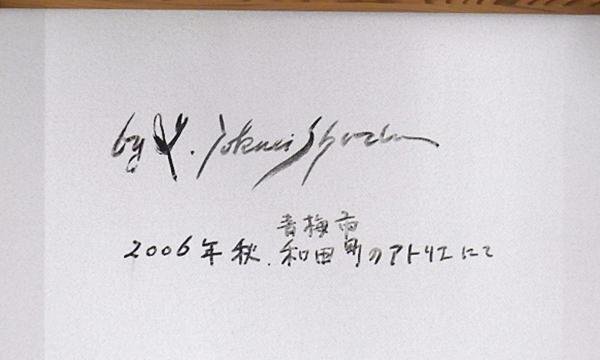 by Y. Tokuci Shozan
青梅市
2006年秋.和田町のアトリエにて